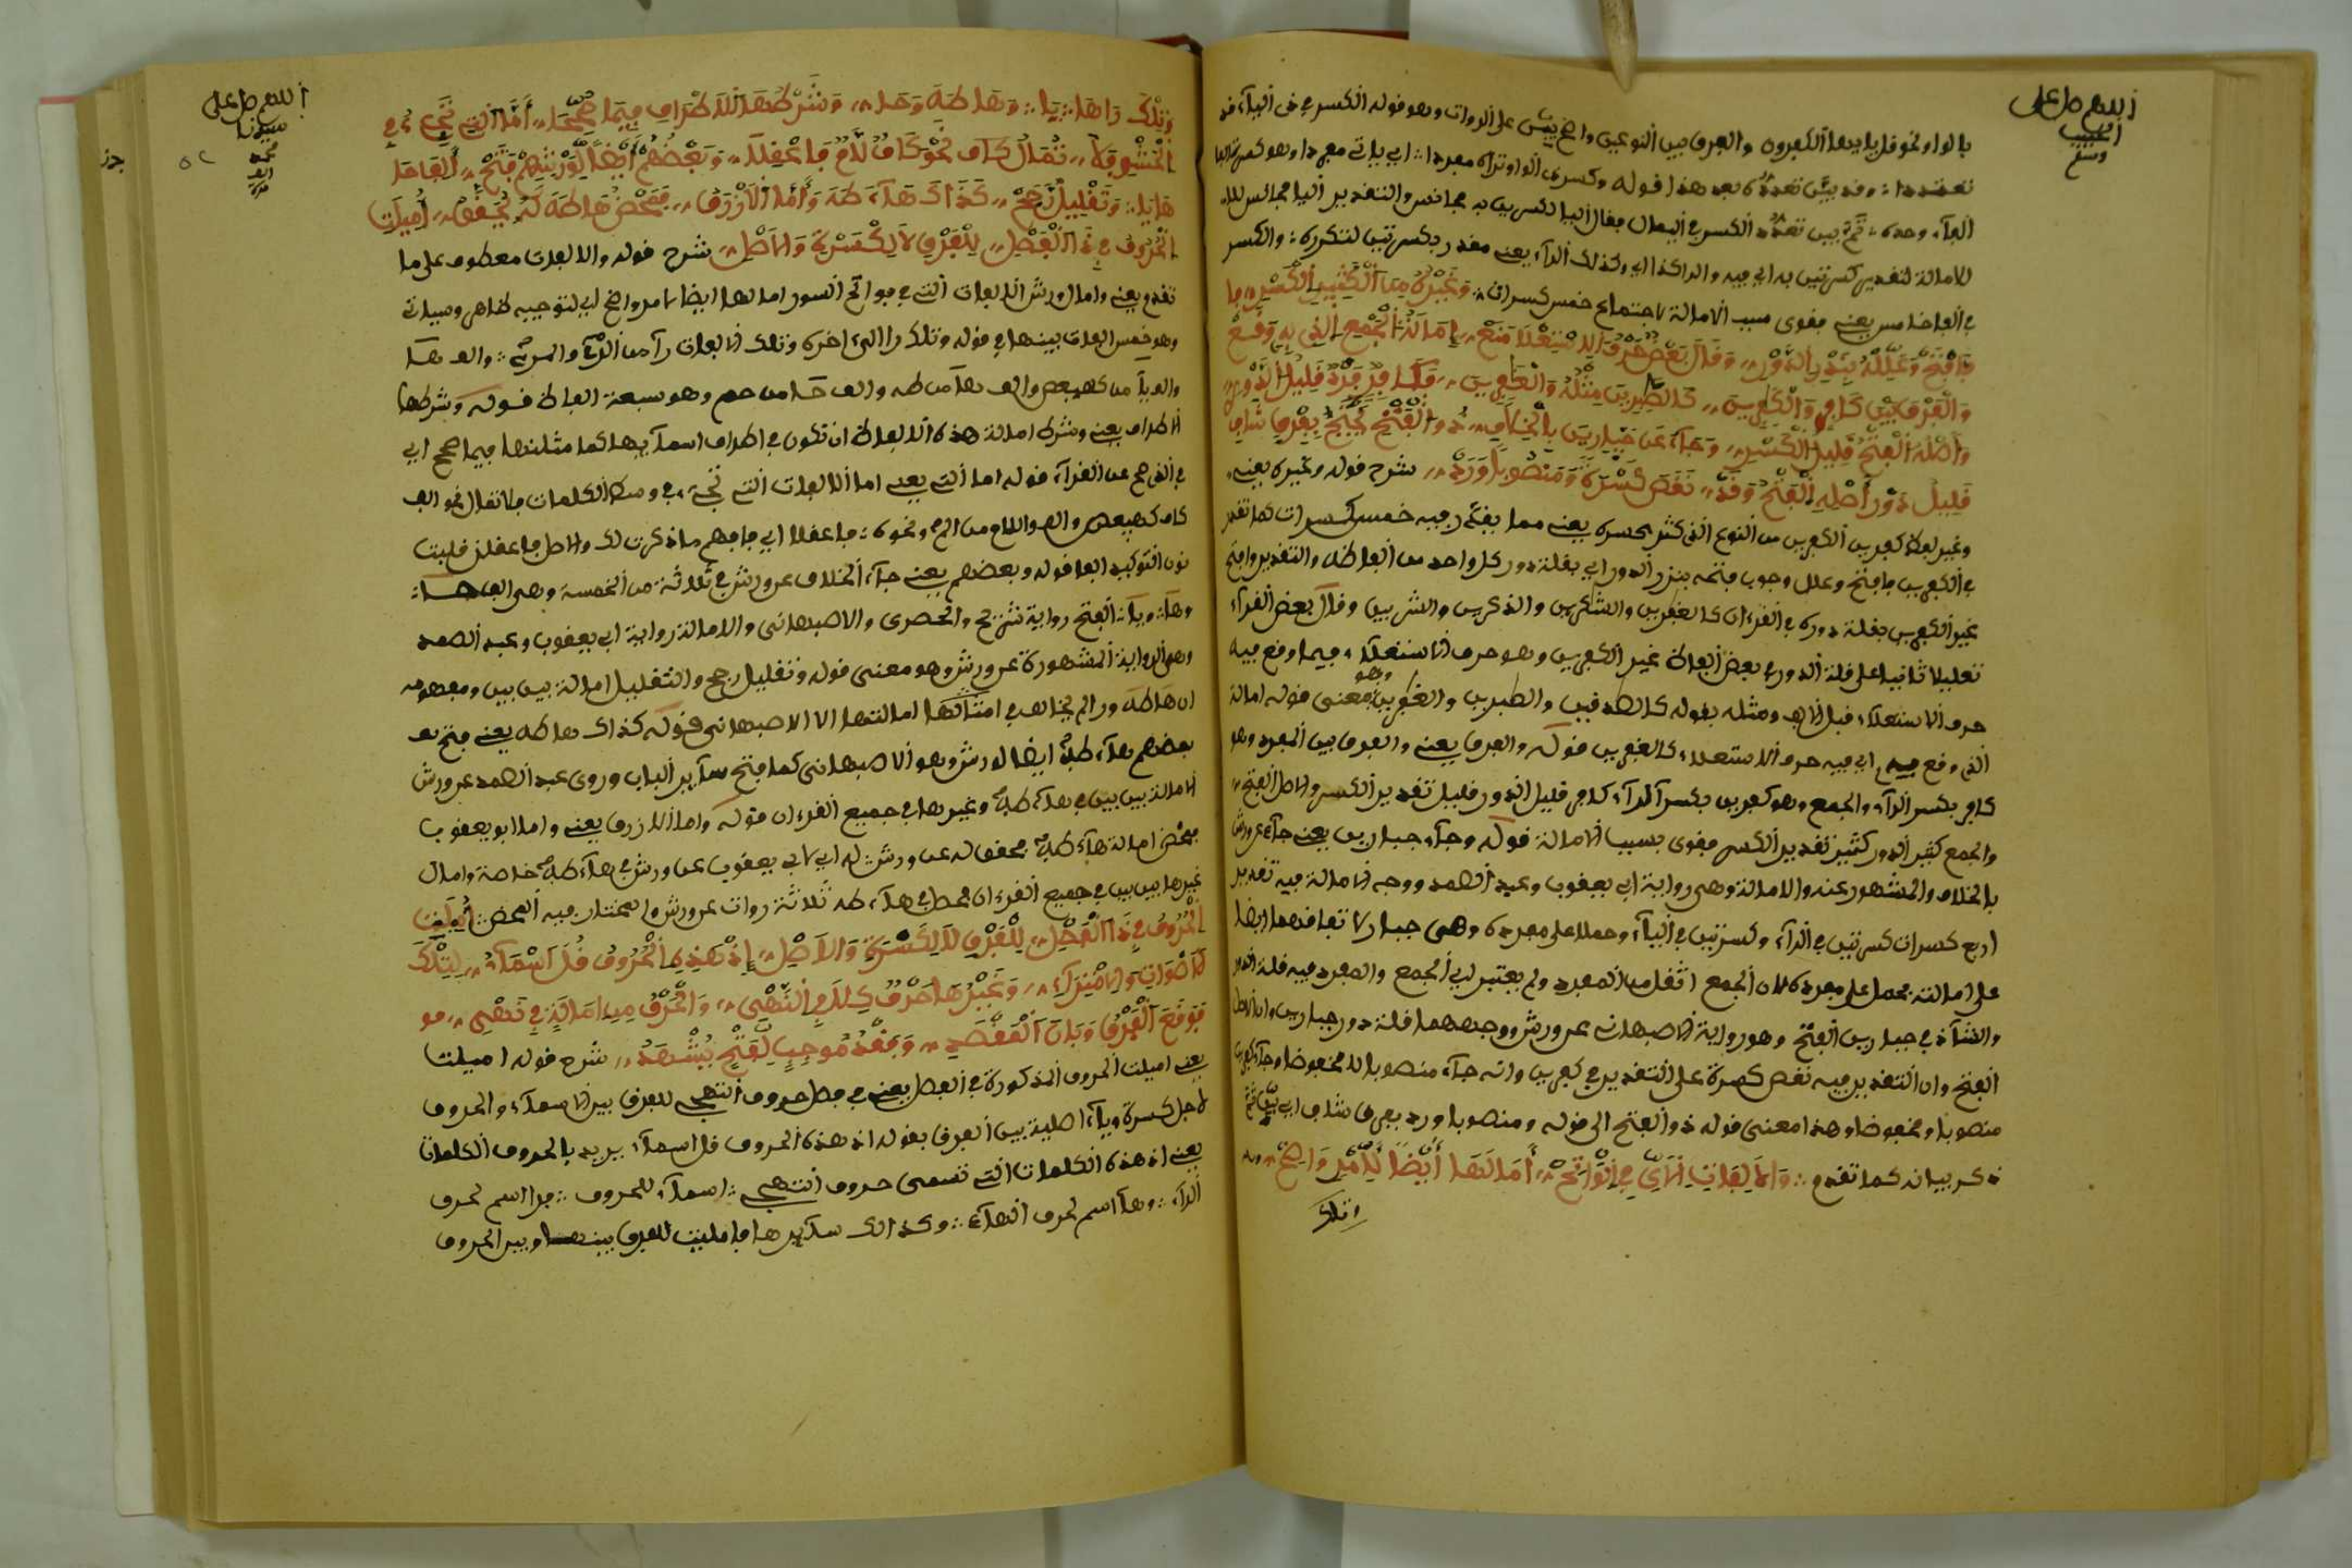 اللهم صل على
الحبيب
وسلم
بالواو نحو قل يا أيها الكافرون والفرق بين النوعين واضح بين على الروات وهو قوله الكسر في الياء قد
تعددا وقد بين تعدده بعد هذا قوله وكسرى الواو تراه مفردا أي يأتي مفردا وهو كسر
الفاء وحده ثم بين تعدد الكسر في اليا فقال اليا الكسرين به مجانس والتقدير اليا مجانس
للامالة لتقدير كسرتين به أي فيه والرا كذا أي وكذلك الراء يعني مقدر بكسرتين لتكرره والكسر
في الفا خامس يعني فقوى سبب الامالة لاجتماع خمس كسرات وغيره من الكثير الكسر ما
فافتح وعلله بنذر الدور وقال بعض حرف الاستعلا منع امالة الجمع الذي به وقع
والفرق بين كافر والكافرين كالطيرين مثله والغارين كافر فرد قليل الدور
وأصله الفتح قليل الكسر وجاء عن جبارين بالخلاف ذو الفتح يحتج بفرق شاف
قليل دور أصله الفتح وقد نقص كسرة ومنصوبا ورد شرح قوله وغيره يعني
وغير لفظ كافرين الكافرين من النوع الذي كثر كسره يعني مما يقدر فيه خمس كسرات كما تقدم
في الكافرين فافتح وعلل وجوب فتحه بنزر الدور أي بقلة دور كل واحد من الفاظه والتقدير وافتح
غير الكافرين بقلة دوره في القرءان كالغافرين والشاكرين والذاكرين والشاربين وقال بعض القراء
تعليلا ثانيا على قلة الدور في بعض الفاظ غير الكافرين وهو حرف الاستعلاء فيما وقع فيه
حرف الاستعلاء قبل الالف ومثله بقوله كالصادقين والطيرين والغارين وهو معنى قوله امالة
الذي وقع فيه أي فيه حرف الاستعلاء كالغافرين قوله والفرق يعني والفرق بين المفرد وهو
كافر بكسر الراء والجمع وهو كافرين بكسر الراء كافر قليل الدور قليل تقدير الكسر والاصل الفتح
والجمع كثير الدور كثير تقدير الكسر فقوى بسبب الامالة قوله وجاء جبارين يعني جاء عن ورش
بالخلاف والمشهور عنه والامالة وهي رواية أبي يعقوب وعبد الصمد ووجه الامالة فيه تقدير
اربع كسرات كسرتين في الراء وكسرتين في الياء وحملا على مفرده وهي جبار لا تفاقهما ايضا
على امالته فحمل على مفرده لان الجمع اثقل من المفرد ولم يعتبر في الجمع والمفرد فيه قلة الدور
والشاذ في جبارين الفتح وهو رواية الاصبهان عن ورش ووجههما قلة دور جبارين وان الاصل
الفتح وان التقدير فيه نقص كسرة على التقدير في كافرين وانه جاء منصوبا لا مخفوضا وجاء كافرين
منصوبا ومخفوضا وهذا معنى قوله ذو الفتح الى قوله ومنصوبا ورد بفرق شاف أي
ذكر بيانه كما تقدم والالفات اللائي في الفواتح امالها أيضا لأمر واضح
وتلك
اللهم صل على
سيدنا
محمد
وتلك را ها يا وها طه وحا وشرطها الاطراف فيما صححا أما التي تجيء في
الحشو فلا تمال كاف نحو كاف لام فاعقلا وبعضهم أيضا لورشهم فتح الف حا
ها يا وتقليل رجح كذاك هاء طه وأما الازرق فمحض ها طه له يحقق أميلت
الحروف في ذا الفصل للفرق لا لكسرة والاصل شرح قوله والالفات معطوف على ما
تقدم يعني وامال ورش الالفات التي في فواتح السور امالها ايضا لامر واضح أي لتوجيه ظاهر وسياتي
وهو خمس الفات بينها في قوله وتلك را الى اخره وتلك الالفات را من الر والمر والف ها
واليا من كهيعص والف ها من طه والف حا من حم وهو سبعة الفاظ قوله وشرطها
الاطراف يعني وشرط امالة هذه الالفاظ ان تكون في اطراف اسمائها كما مثلتها فيما صحح أي
في الذي صح عن القراء قوله اما التي يعني اما الالفات التي تجيء في وسط الكلمات فلا تمال نحو الف
كاف كهيعص والف واللام من الم ونحوه فاعقلا أي فافهم ما ذكرت لك والاصل فاعقلن قلبت
نون التوكيد الفا قوله وبعضهم يعني جاء الخلاف عن ورش في ثلاثة من الخمسة وهي الف حا
وها ويا الفتح رواية والحصرى والاصبهانى والامالة رواية ابي يعقوب وعبد الصمد
وهو الرواية المشهورة عن ورش وهو معنى قوله وتقليل رجح والتقليل امالة بين بين ومفهومه
ان ها طه ورا لم يخالف في امالتها الا الاصبهانى قوله كذاك ها طه يعني فتح
بعضهم هاء طه أيضا لورش وهو الاصبهانى كما فتح سائر الباب وروى عبد الصمد عن ورش
الامالة بين بين في هاء طه وغيرها في جميع القرءان قوله واما الازرق يعني واما ابو يعقوب
فمحض امالة هاء طه محقق له عن ورش له أي لابي يعقوب عن ورش في هاء طه خاصة وامال
غيرها بين بين في جميع القرءان فحصل في هاء طه ثلاثة روات عن ورش والمختار فيه المحض أميلت
الحروف في ذا الفصل للفرق لا لكسرة والاصل إذ هذه الحروف قل اسماء لتلك
الاصوات والامتراء وغيرها حرف كلا في النهي والحرف من امالة في نهي
فوقع الفرق وبان القصد وفقد موجب لفتح يشهد شرح قوله اميلت
يعني اميلت الحروف المذكورة في الفصل يعني في فصل حروف التهجي للفرق بين الاسماء والحروف
لا جل كسرة وياء اصلية بين الفرق بقوله اذ هذه الحروف قل اسماء يريد بالحروف الكلمات
يعني اذ هذه الكلمات التي تسمى حروف التهجي اسماء للحروف فرا اسم لحرف
الراء وها اسم لحرف الهاء وكذلك سائرها فاميلت للفرق بينها وبين الحروف